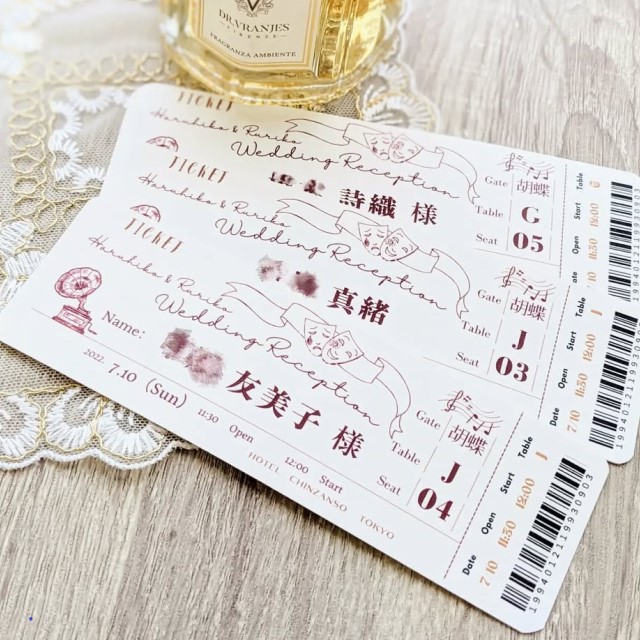 DR. VRANJES
FIRENZE
FRAGRANZA AMBIENTE
TICKET
Haruhiko & Ruriko
Wedding Reception
詩織 様
Gate
胡蝶
Table
G
Seat
05
Table
G
Start
12:00
Open
11:30
7.10
TICKET
Haruhiko & Ruriko
Wedding Reception
真緒
Gate
胡蝶
Table
J
Seat
03
Table
J
Start
12:00
Open
11:30
Date
7.10
1994012119930903
TICKET
Haruhiko & Ruriko
Wedding Reception
Name:
友美子 様
2022.
7.10 (Sun)
11:30 Open
12:00 Start
HOTEL CHINZANSO TOKYO
Gate
胡蝶
Table
J
Seat
04
Table
J
Start
12:00
Open
11:30
Date
7.10
1994012119930903